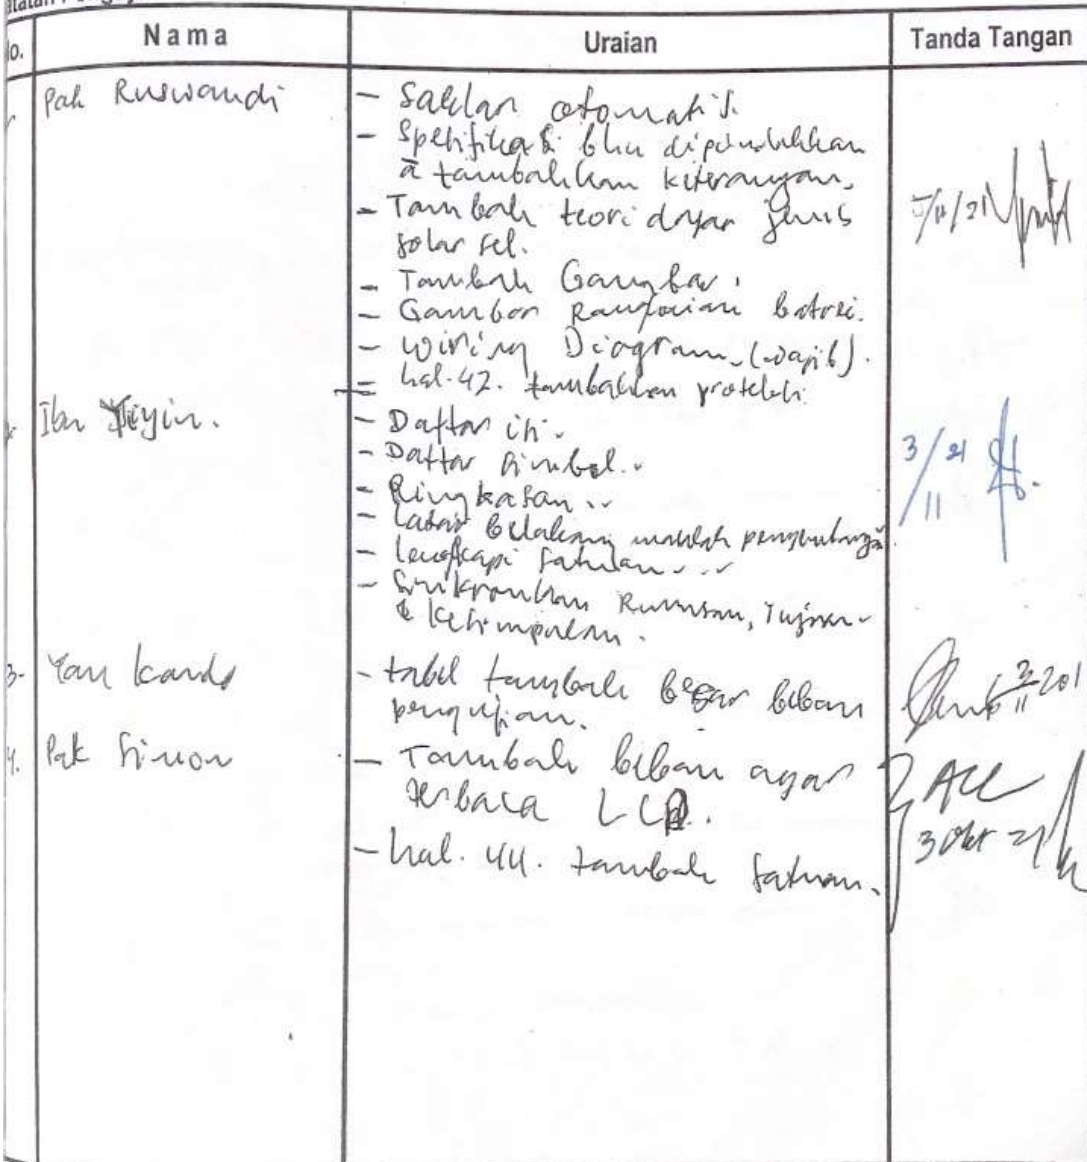 o. Nama Uraian Tanda Tangan
Pak Ruswandi - Saklar otomatis.
- Spesifikasi dipindahkan
tambahkan keterangan.
- Tambah teori dasar jenis 5/11/21
solar sel.
- Tambah Gambar.
- Gambar Rangkaian baterai.
- Wiring Diagram (wajib).
- hal. 42. tambahkan proteksi.
Ibu - Daftar isi.
- Daftar simbol. 3/11 21
- Ringkasan
- latar belakang masalah
- lengkapi satuan
- Sinkronkan Rumusan, Tujuan
& kesimpulan.
3- Yan - tabel tambah besar beban
pengujian.
4. Pak Simon - Tambah beban agar ACC
terbaca LCD. 3 Okt 21
- hal. 44. tambah satuan.